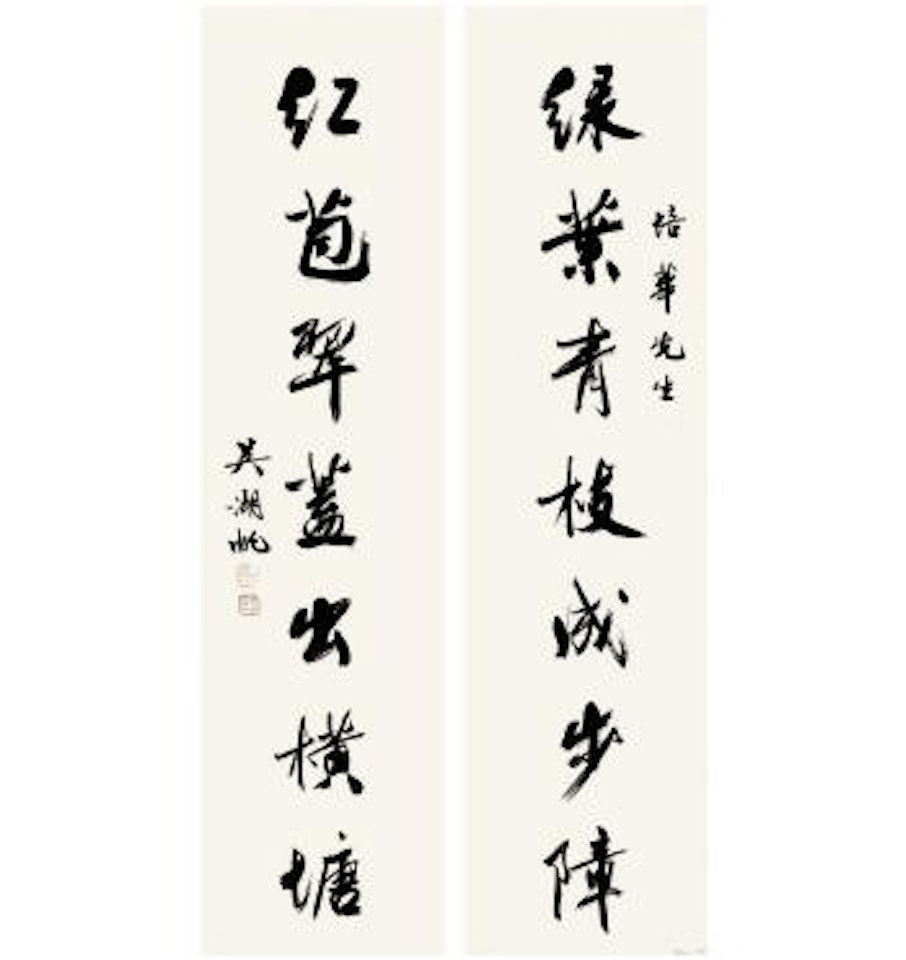 培華先生
綠葉青枝成步障
紅苞翠蓋出橫塘
吳湖帆